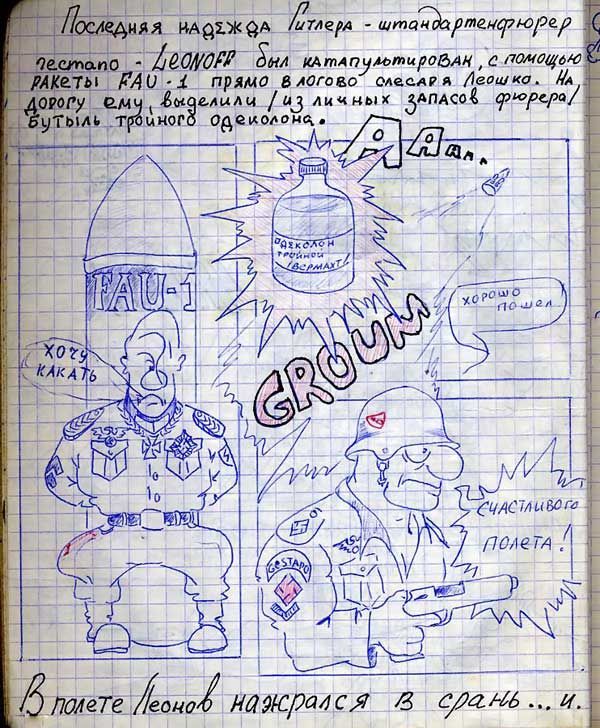 Последняя надежда Гитлера - штандартенфюрер
гестапо - LEONOFF был катапультирован, с помощью
ракеты FAU-1 прямо в логово слесаря Леошко. На
дорогу ему, выделили /из личных запасов фюрера/
бутыль тройного одеколона.
А А А...
Одеколон
тройной
/Вермахт/
FAU-1
хорошо
пошел
хочу
какать
GROUM
счастливого
полета!
GESTAPO
В полете Леонов нажрался в срань... и.